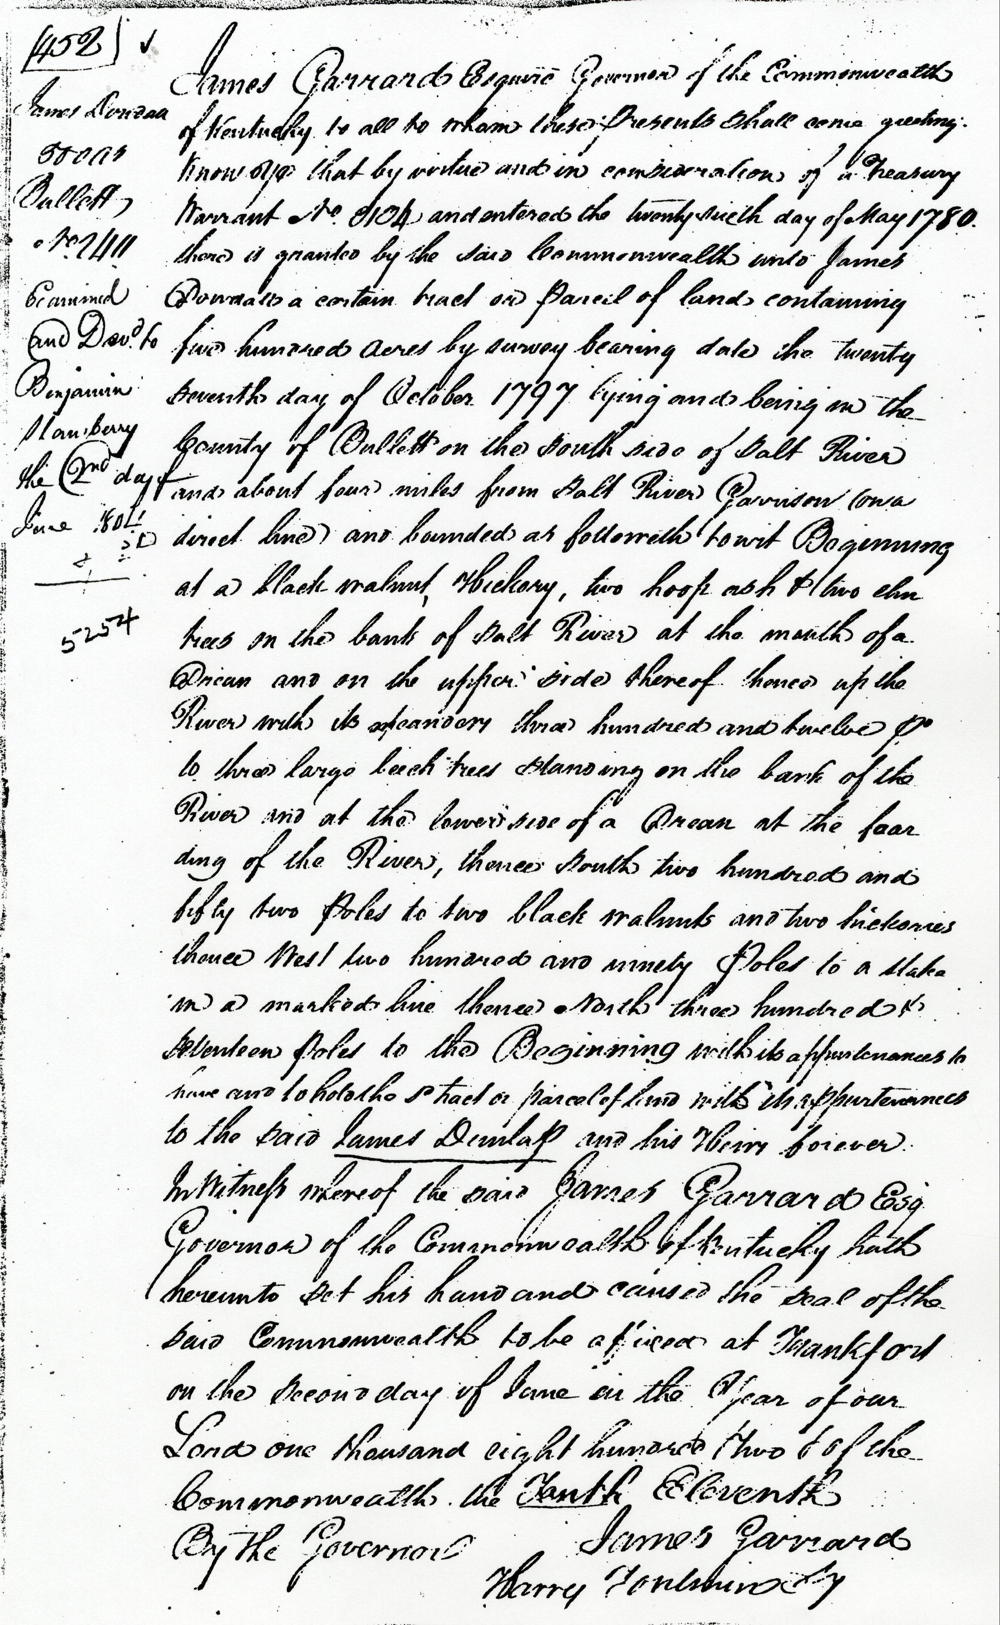 (452)
James Dowdaa
500 as
Bullett
No. 2411
Examined
and Dev.d to
Benjamin
Stansberry
the 2nd day of
June 1801
5254
James Garrard Esquire Governor of the Commonwealth
of Kentucky to all to whom these Presents shall come greeting.
Know Ye that by virtue and in consideration of a Treasury
Warrant No. 8104 and entered the twenty sixth day of May 1780.
there is granted by the said Commonwealth unto James
Dowdall a certain tract or parcel of land containing
five hundred acres by survey bearing date the twenty
seventh day of October 1797 lying and being in the
County of Bullett on the south side of Salt River
and about four miles from Salt River Garrison (on a
direct line) and bounded as followeth towit Beginning
at a black walnut, Hickory, two hoop ash & two elm
trees on the bank of Salt River at the mouth of a
Drean and on the upper side thereof thence up the
River with its meanders three hundred and twelve Po
to three large beech trees standing on the bank of the
River and at the lower side of a Drean at the
ding of the River, thence South two hundred and
fifty two Poles to two black walnuts and two hickories
thence West two hundred and ninety Poles to a stake
in a marked line thence North three hundred &
seventeen Poles to the Beginning with its appurtenances to
have and to hold the sd tract or parcel of land with its appurtenances
to the said James Dunlap and his Heirs forever.
In Witness whereof the said James Garrard Esq
Governor of the Commonwealth of Kentucky hath
hereunto set his hand and caused the seal of the
said Commonwealth to be affixed at Frankfort
on the second day of June in the Year of our
Lord one thousand eight hundred two & of the
Commonwealth the Tenth Eleventh
By the Governor James Garrard
Harry Toulmin Sy